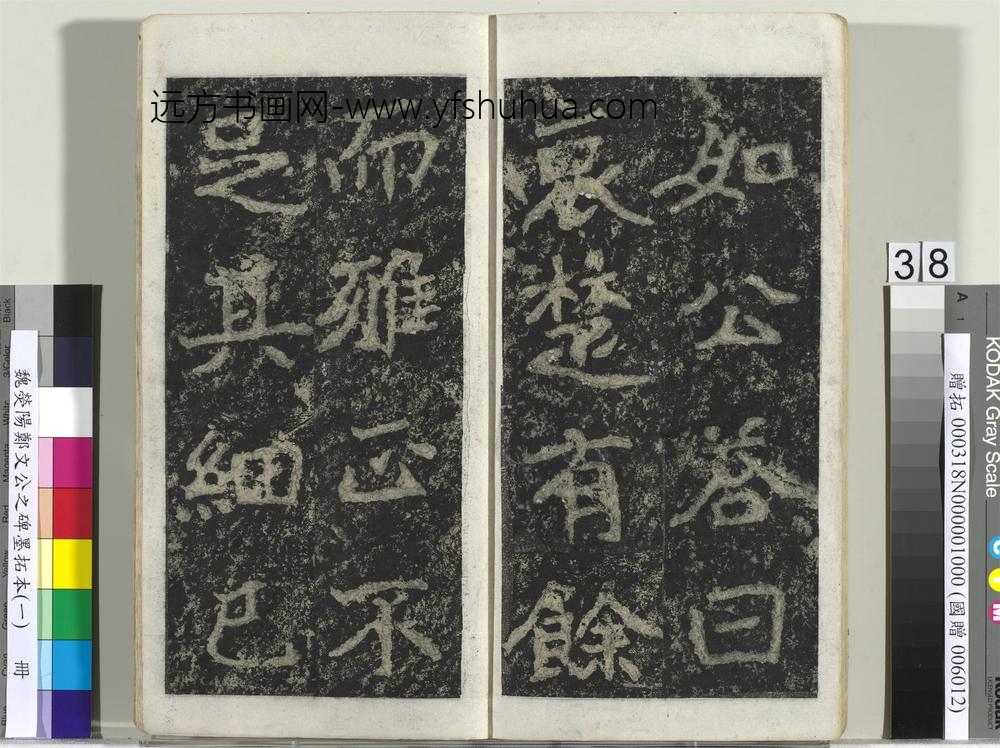 远方书画网-www.yfshuhua.com
如公荅曰
哀楚有餘
而雅正不
足其細已
38
魏滎陽鄭文公之碑墨拓本(一) 冊
贈拓 000318N000001000 (國贈 006012)
KODAK Gray Scale
A 1
C
Y
M
3/Color
Black
White
Magenta
Red
Yellow
Green
Cyan
Blue